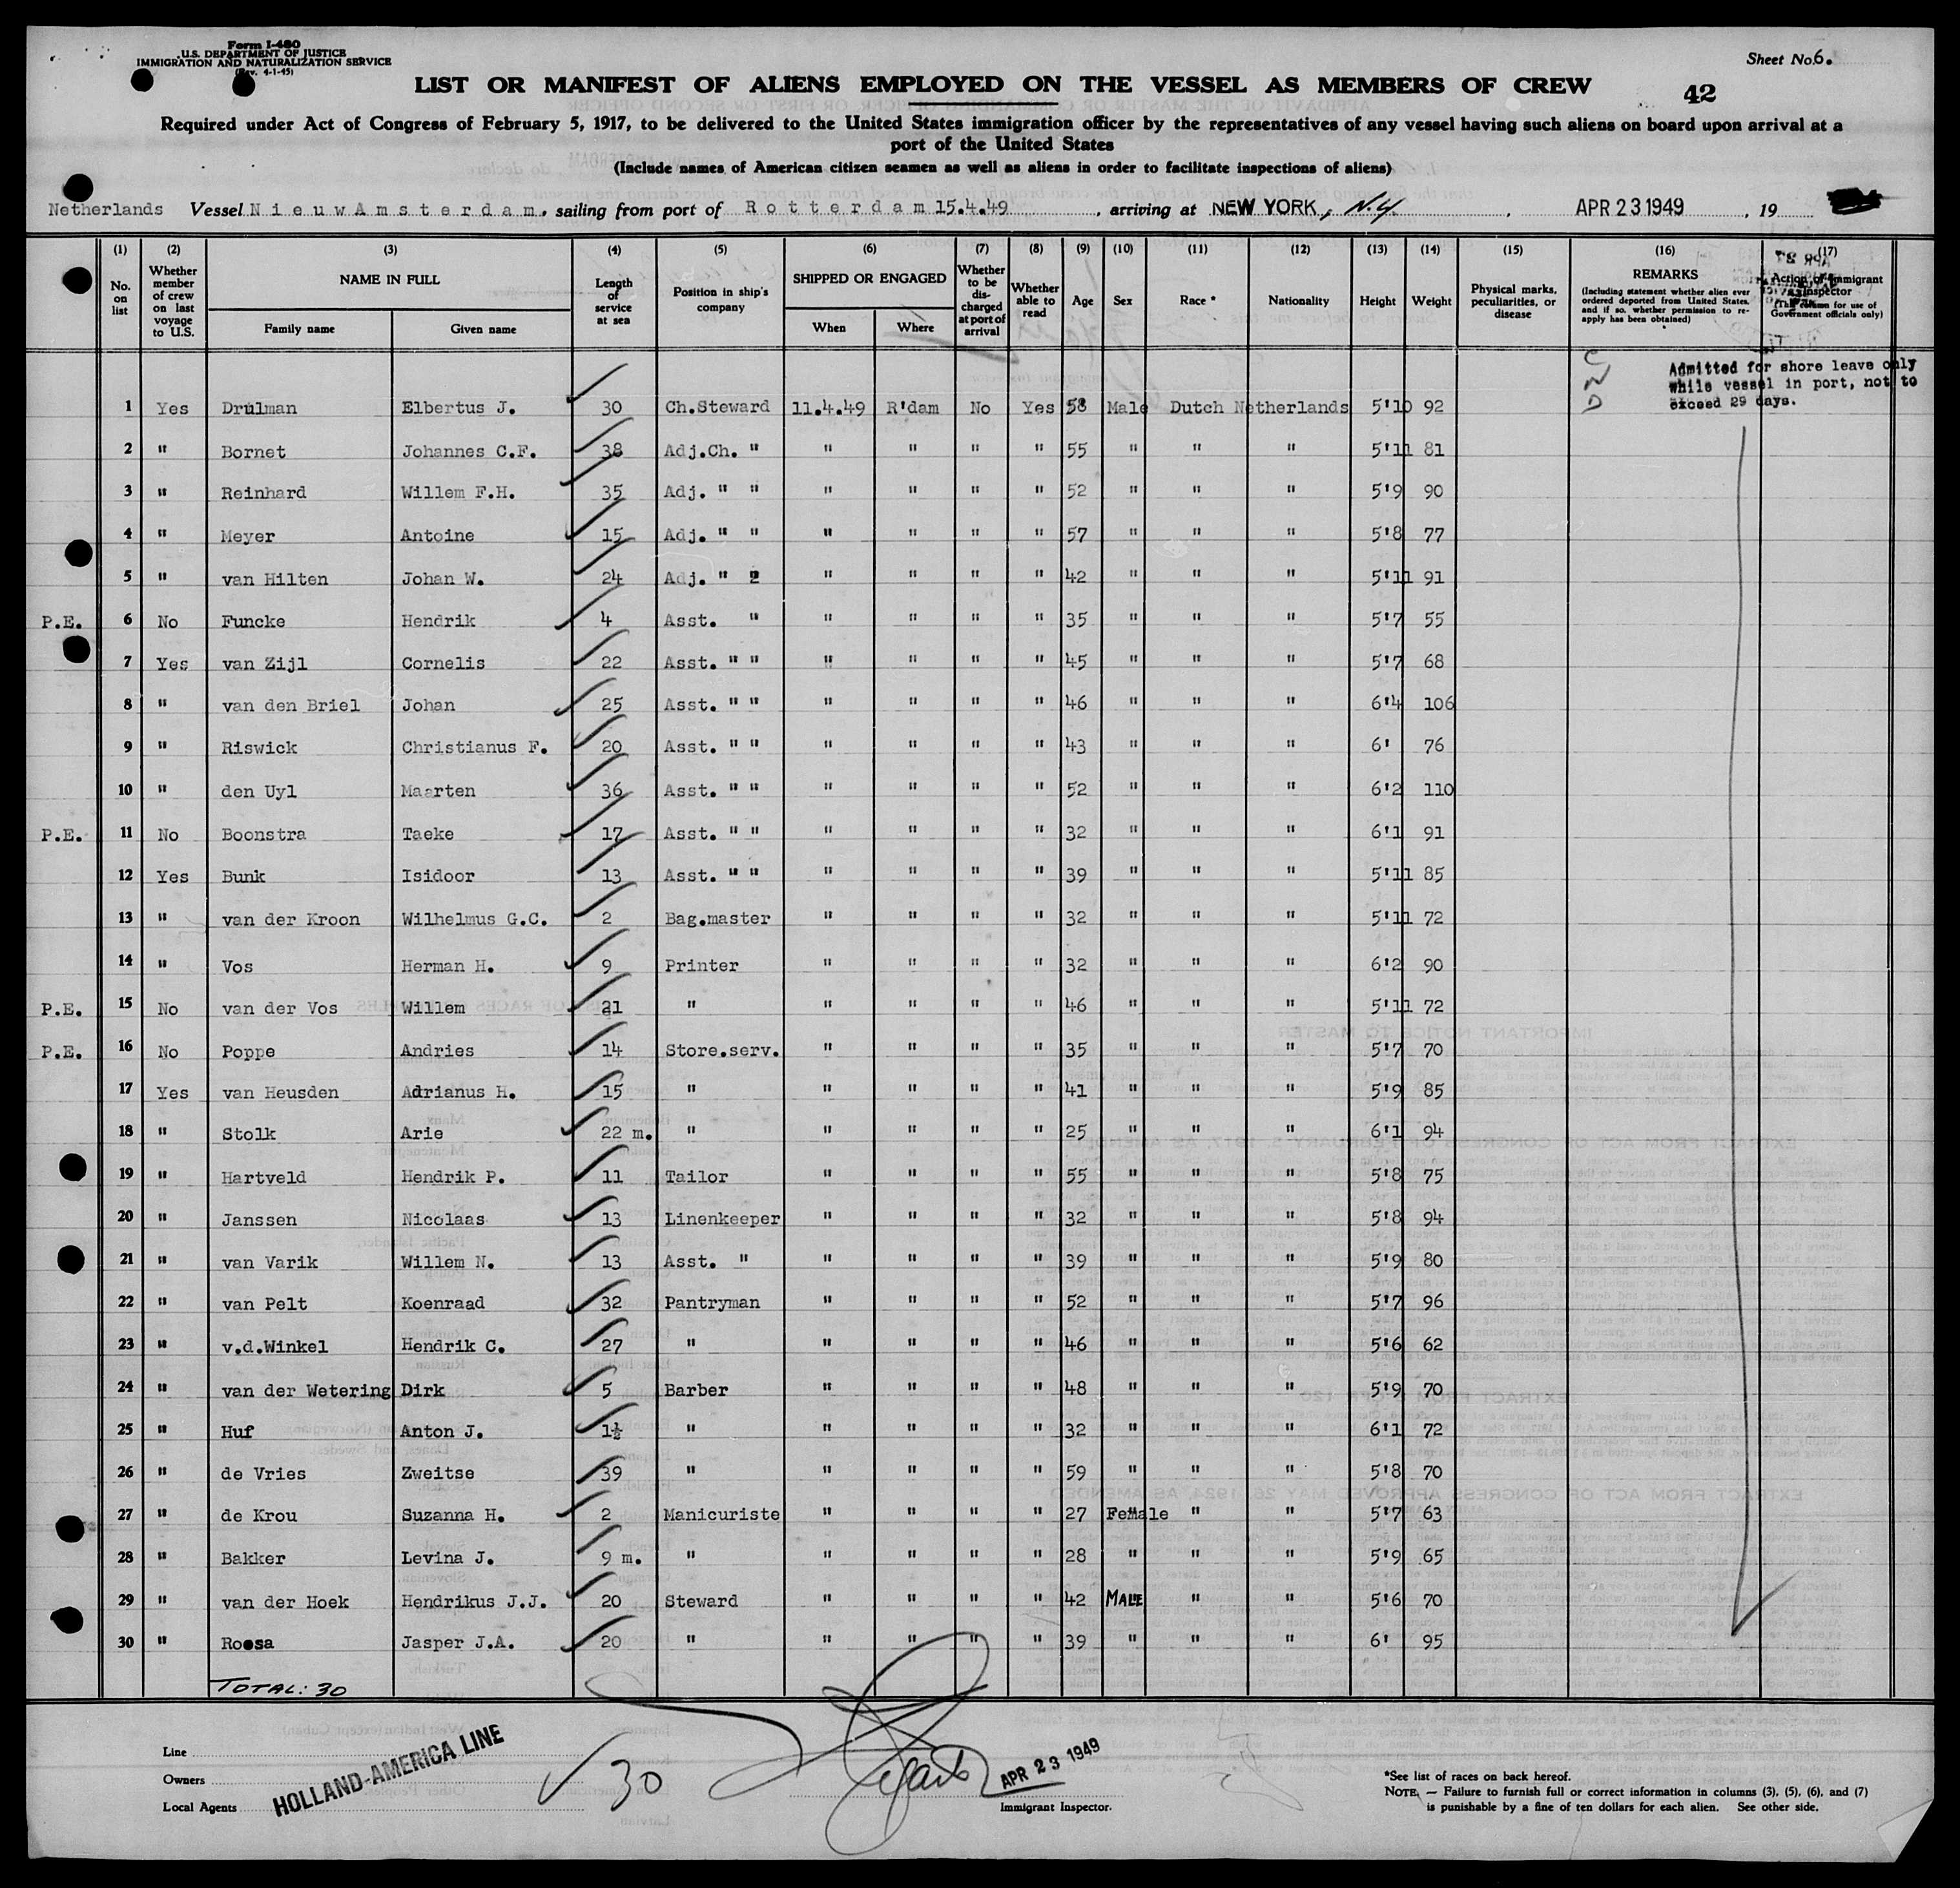 Form I-480
U.S. DEPARTMENT OF JUSTICE
IMMIGRATION AND NATURALIZATION SERVICE
(Rev. 4-1-45)
Sheet No. 6.
LIST OR MANIFEST OF ALIENS EMPLOYED ON THE VESSEL AS MEMBERS OF CREW
42
Required under Act of Congress of February 5, 1917, to be delivered to the United States immigration officer by the representatives of any vessel having such aliens on board upon arrival at a
port of the United States
(Include names of American citizen seamen as well as aliens in order to facilitate inspections of aliens)
Netherlands Vessel Nieuw Amsterdam. sailing from port of Rotterdam 15.4.49, arriving at NEW YORK, N.Y., APR 23 1949, 19
(1) (2) (3) (4) (5) (6) (7) (8) (9) (10) (11) (12) (13) (14) (15) (16) (17)
No. on list | Whether member of crew on last voyage to U.S. | NAME IN FULL Family name Given name | Length of service at sea | Position in ship's company | SHIPPED OR ENGAGED When Where | Whether to be discharged at port of arrival | Whether able to read | Age | Sex | Race * | Nationality | Height | Weight | Physical marks, peculiarities, or disease | REMARKS (Including statement whether alien ever ordered deported from United States, and if so, whether permission to reapply has been obtained) | Action of Immigrant Inspector (This column for use of Government officials only)
Admitted for shore leave only
while vessel in port, not to
exceed 29 days.
1 Yes Drulman Elbertus J. 30 Ch.Steward 11.4.49 R'dam No Yes 58 Male Dutch Netherlands 5'10 92
2 " Bornet Johannes C.F. 38 Adj.Ch. " " " " " 55 " " " 5'11 81
3 " Reinhard Willem F.H. 35 Adj. " " " " " " 52 " " " 5'9 90
4 " Meyer Antoine 15 Adj. " " " " " " 57 " " " 5'8 77
5 " van Hilten Johan W. 24 Adj. " 2 " " " " 42 " " " 5'11 91
P.E. 6 No Funcke Hendrik 4 Asst. " " " " " 35 " " " 5'7 55
7 Yes van Zijl Cornelis 22 Asst. " " " " " " 45 " " " 5'7 68
8 " van den Briel Johan 25 Asst. " " " " " " 46 " " " 6'4 106
9 " Riswick Christianus F. 20 Asst. " " " " " " 43 " " " 6' 76
10 " den Uyl Maarten 36 Asst. " " " " " " 52 " " " 6'2 110
P.E. 11 No Boonstra Taeke 17 Asst. " " " " " " 32 " " " 6'1 91
12 Yes Bunk Isidoor 13 Asst. " " " " " " 39 " " " 5'11 85
13 " van der Kroon Wilhelmus G.C. 2 Bag.master " " " " 32 " " " 5'11 72
14 " Vos Herman H. 9 Printer " " " " 32 " " " 6'2 90
P.E. 15 No van der Vos Willem 21 " " " " " 46 " " " 5'11 72
P.E. 16 No Poppe Andries 14 Store.serv. " " " " 35 " " " 5'7 70
17 Yes van Heusden Adrianus H. 15 " " " " " 41 " " " 5'9 85
18 " Stolk Arie 22 m. " " " " " 25 " " " 6'1 94
19 " Hartveld Hendrik P. 11 Tailor " " " " 55 " " " 5'8 75
20 " Janssen Nicolaas 13 Linenkeeper " " " " 32 " " " 5'8 94
21 " van Varik Willem N. 13 Asst. " " " " " 39 " " " 5'9 80
22 " van Pelt Koenraad 32 Pantryman " " " " 52 " " " 5'7 96
23 " v.d.Winkel Hendrik C. 27 " " " " " 46 " " " 5'6 62
24 " van der Wetering Dirk 5 Barber " " " " 48 " " " 5'9 70
25 " Huf Anton J. 1½ " " " " " 32 " " " 6'1 72
26 " de Vries Zweitse 39 " " " " " 59 " " " 5'8 70
27 " de Krou Suzanna H. 2 Manicuriste " " " " 27 Female " " 5'7 63
28 " Bakker Levina J. 9 m. " " " " " 28 " " " 5'9 65
29 " van der Hoek Hendrikus J.J. 20 Steward " " " " 42 MALE " " 5'6 70
30 " Roosa Jasper J.A. 20 " " " " " 39 " " " 6' 95
TOTAL: 30
Line
Owners
Local Agents
HOLLAND-AMERICA LINE
30
APR 23 1949
Immigrant Inspector.
*See list of races on back hereof.
NOTE. — Failure to furnish full or correct information in columns (3), (5), (6), and (7)
is punishable by a fine of ten dollars for each alien. See other side.